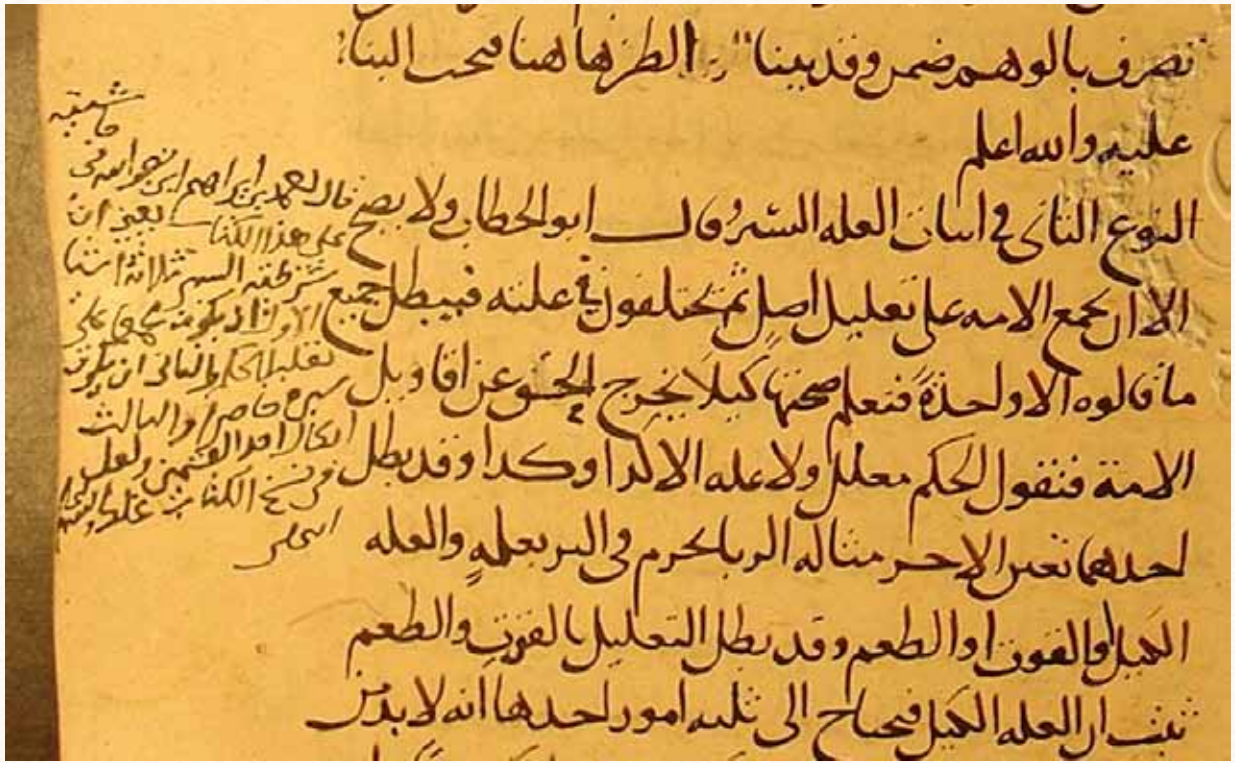 تصرف بالوهم ضمن وقد بينا الطرها هنا فيجب البنا
عليه والله اعلم
النوع الثاني في اثبات العله السبر وقال ابو الخطاب ولا يصح
الا ان يجمع الامه على تعليل اصل ثم يختلفون في علته فيبطل جميع
ما قالوه الا واحدة فنعلم صحتها كيلا يخرج الحق عن اقاويل
الامة فنقول الحكم معلل ولا عله الا كذا وكذا وقد بطل
احدهما تعين الاخر مثاله الربا يحرم في البر بعلة والعله
الكيل او القوت او الطعم وقد بطل التعليل بالقوت والطعم
ثبت ان العله الكيل فيحتاج الى ثلثه امور احدها انه لا بد من
حاشيه
قال محمد بن ابراهيم ابن نصر الله في
على هذا الكتاب يعني ان
شرطه السبر ثلاثة اشيا
الاول ان يكون على
تعليل الحكم والثاني ان يكون
سبره حاصرا والثالث
ابطال احد القسمين ولعل
في نسخ الكتاب غلط
انتهى